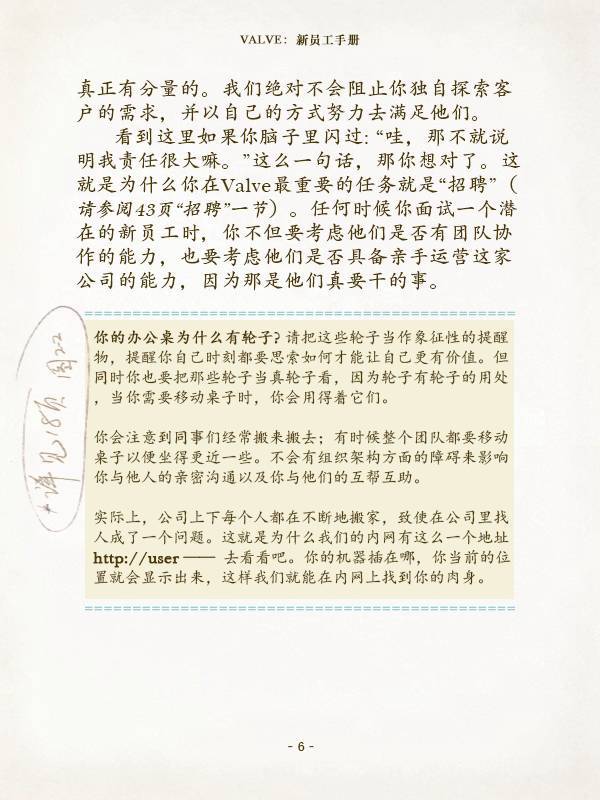 VALVE：新员工手册
真正有分量的。我们绝对不会阻止你独自探索客
户的需求，并以自己的方式努力去满足他们。
看到这里如果你脑子里闪过: “哇，那不就说
明我责任很大嘛。”这么一句话，那你想对了。这
就是为什么你在Valve最重要的任务就是“招聘”（
请参阅43页“招聘”一节）。任何时候你面试一个潜
在的新员工时，你不但要考虑他们是否有团队协
作的能力，也要考虑他们是否具备亲手运营这家
公司的能力，因为那是他们真要干的事。
你的办公桌为什么有轮子? 请把这些轮子当作象征性的提醒
物，提醒你自己时刻都要思索如何才能让自己更有价值。但
同时你也要把那些轮子当真轮子看，因为轮子有轮子的用处
，当你需要移动桌子时，你会用得着它们。
你会注意到同事们经常搬来搬去；有时候整个团队都要移动
桌子以便坐得更近一些。不会有组织架构方面的障碍来影响
你与他人的亲密沟通以及你与他们的互帮互助。
实际上，公司上下每个人都在不断地搬家，致使在公司里找
人成了一个问题。这就是为什么我们的内网有这么一个地址
http://user —— 去看看吧。你的机器插在哪，你当前的位
置就会显示出来，这样我们就能在内网上找到你的肉身。
*详见18页 图2-2
- 6 -